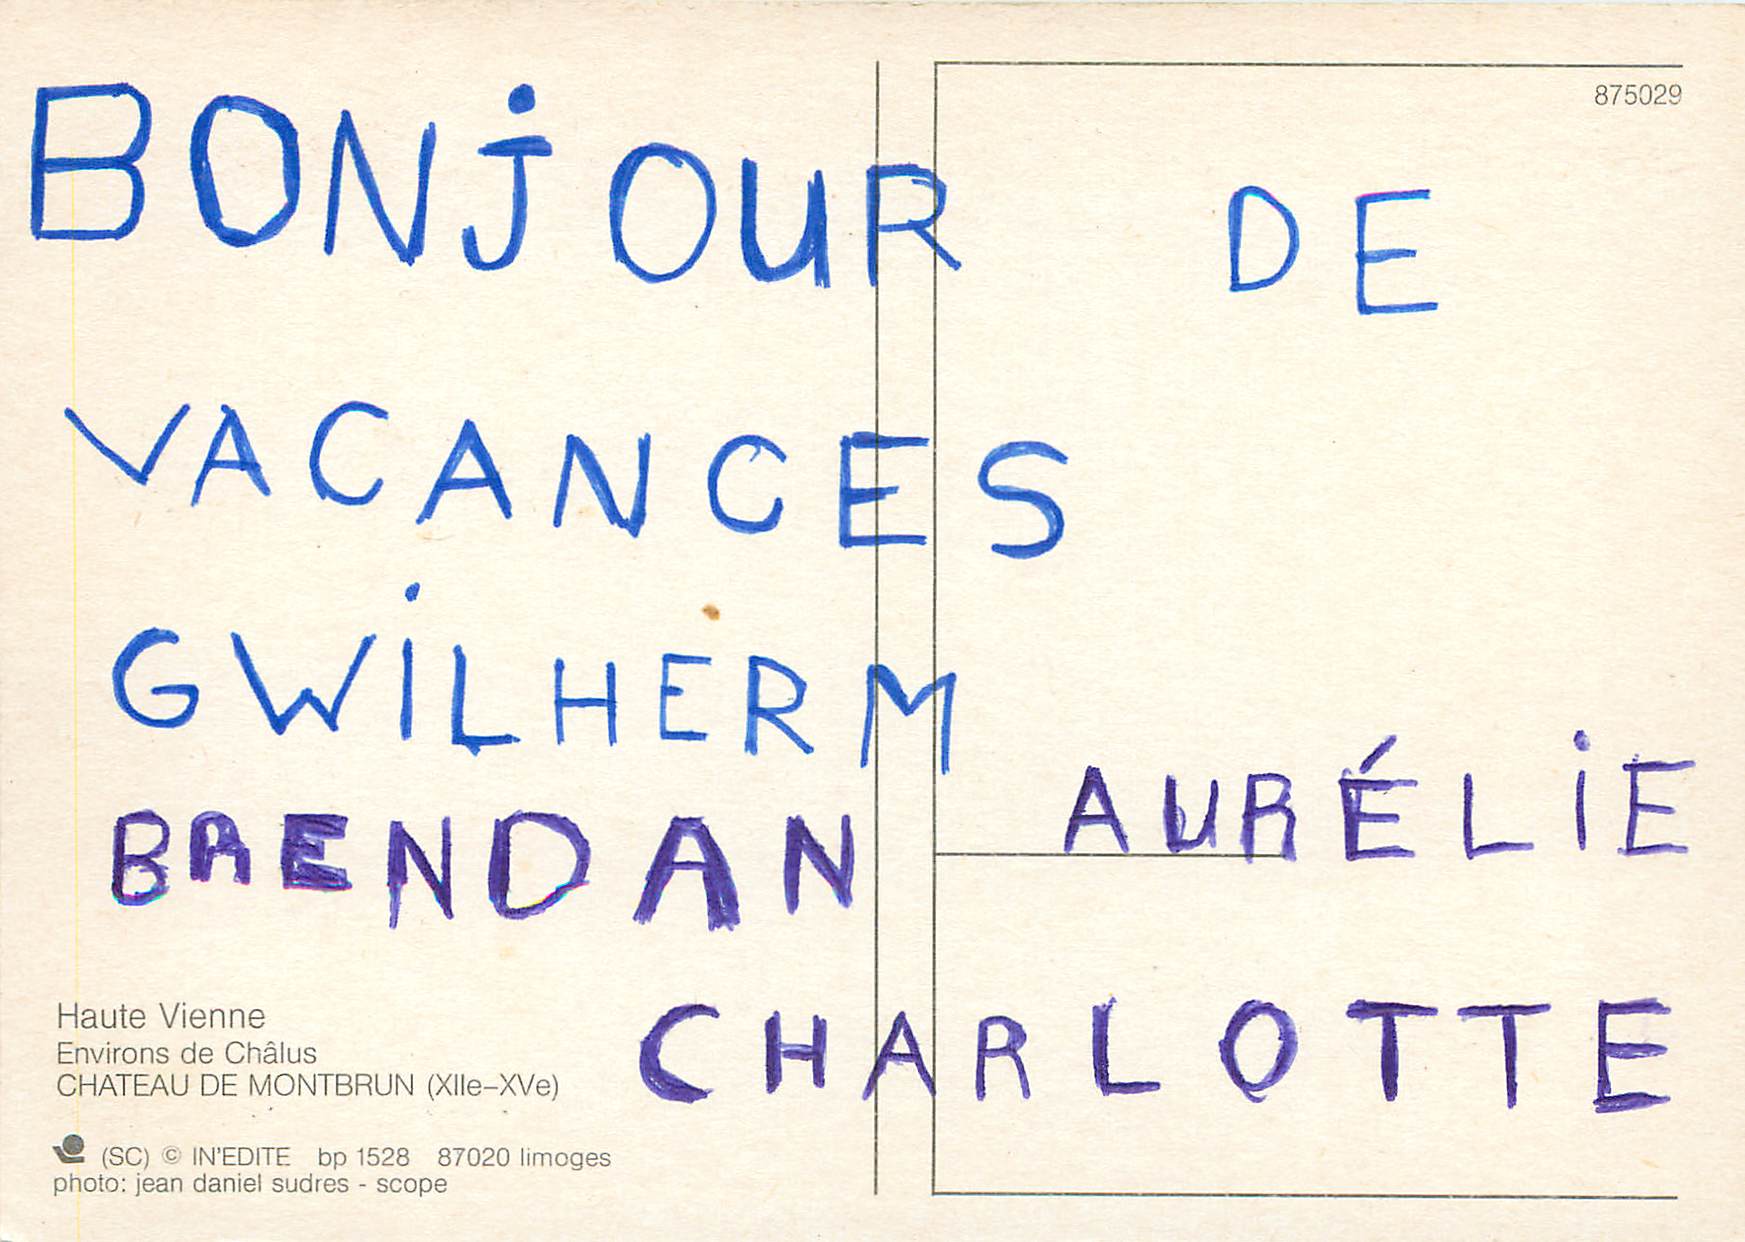 875029
BONjOUR DE
VACANCES
GWiLHERM
BRENDAN AURÉLiE
CHARLOTTE
Haute Vienne
Environs de Châlus
CHATEAU DE MONTBRUN (XIIe–XVe)
(SC) © IN'EDITE bp 1528 87020 limoges
photo: jean daniel sudres - scope